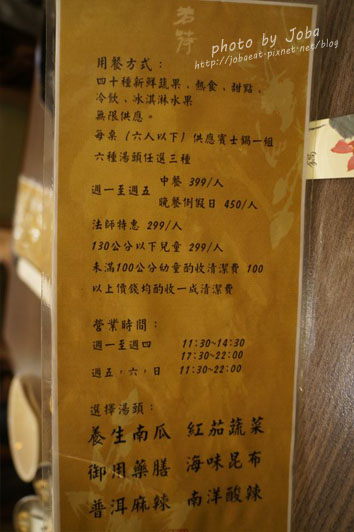 photo by Joba
http://jobaeat.pixnet.net/blog
若荷
用餐方式：
四十種新鮮蔬果、熱食、甜點、
冷飲、冰淇淋水果
無限供應。
每桌（六人以下）供應賓士鍋一組
六種湯頭任選三種
週一至週五 中餐 399/人
晚餐例假日 450/人
法師特惠 299/人
130公分以下兒童 299/人
未滿100公分幼童酌收清潔費 100
以上價錢均酌收一成清潔費
營業時間：
週一至週四 11:30~14:30
17:30~22:00
週五,六,日 11:30~22:00
選擇湯頭：
養生南瓜 紅茄蔬菜
御用藥膳 海味昆布
普洱麻辣 南洋酸辣